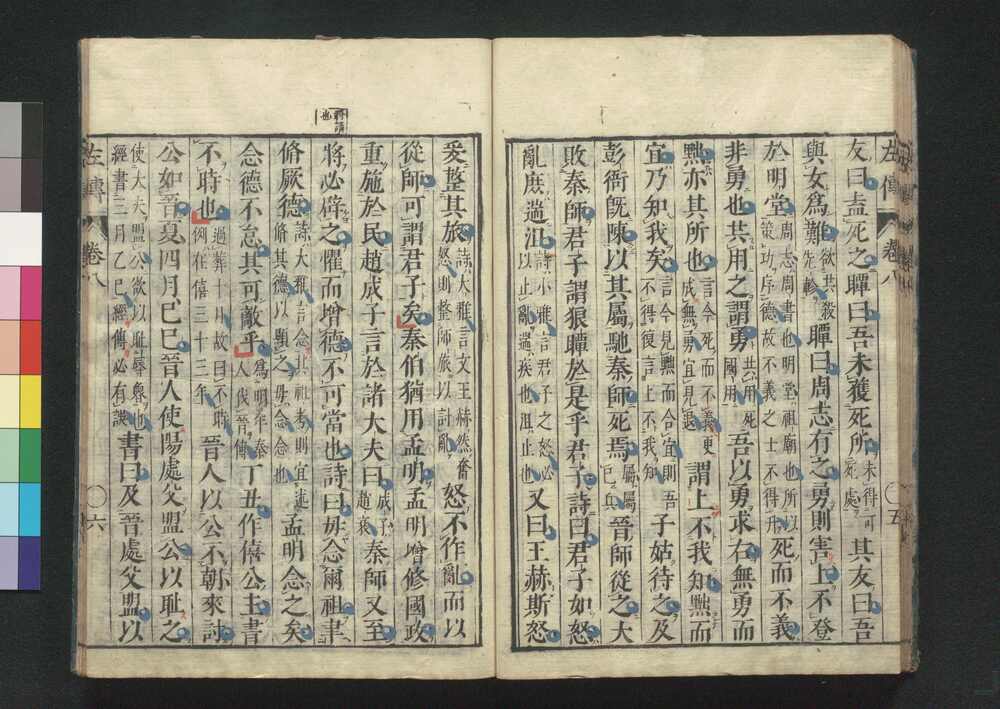 左傳 卷八 〇五
友曰盍死之瞫曰吾未獲死所未得可死處其友曰吾
與女爲難欲共殺先軫瞫曰周志有之勇則害上不登
於明堂周志周書也明堂祖廟也所以策功序德故不義之士不得升死而不義
非勇也共用之謂勇共用死國用吾以勇求右無勇而
黜亦其所也言今死而不義更成無勇宜見退謂上不我知黜而
宜乃知我矣言今見黜而合宜則吾不得復言上不我知子姑待之及
彭衙旣陳以其屬馳秦師死焉屬屬己兵晉師從之大
敗秦師君子謂狼瞫於是乎君子詩曰君子如怒
亂庶遄沮詩小雅言君子之怒必以止亂遄疾也沮止也又曰王赫斯怒
爰整其旅詩大雅言文王赫然奮怒則整師旅以討亂怒不作亂而以
從師可謂君子矣秦伯猶用孟明孟明增修國政
重施於民趙成子言於諸大夫曰成子趙衰秦師又至
將必辟之懼而增德不可當也詩曰毋念爾祖聿
脩厥德詩大雅言念其祖考則宜述脩其德以顯之毋念念也孟明念之矣
念德不怠其可敵乎爲明年秦人伐晉傳丁丑作僖公主書
不時也過葬十月故曰不時例在僖三十三年晉人以公不朝來討
公如晉夏四月己巳晉人使陽處父盟公以恥之
使大夫盟公欲以恥辱魯也經書三月乙巳經傳必有誤書曰及晉處父盟以
左傳 卷八 〇六